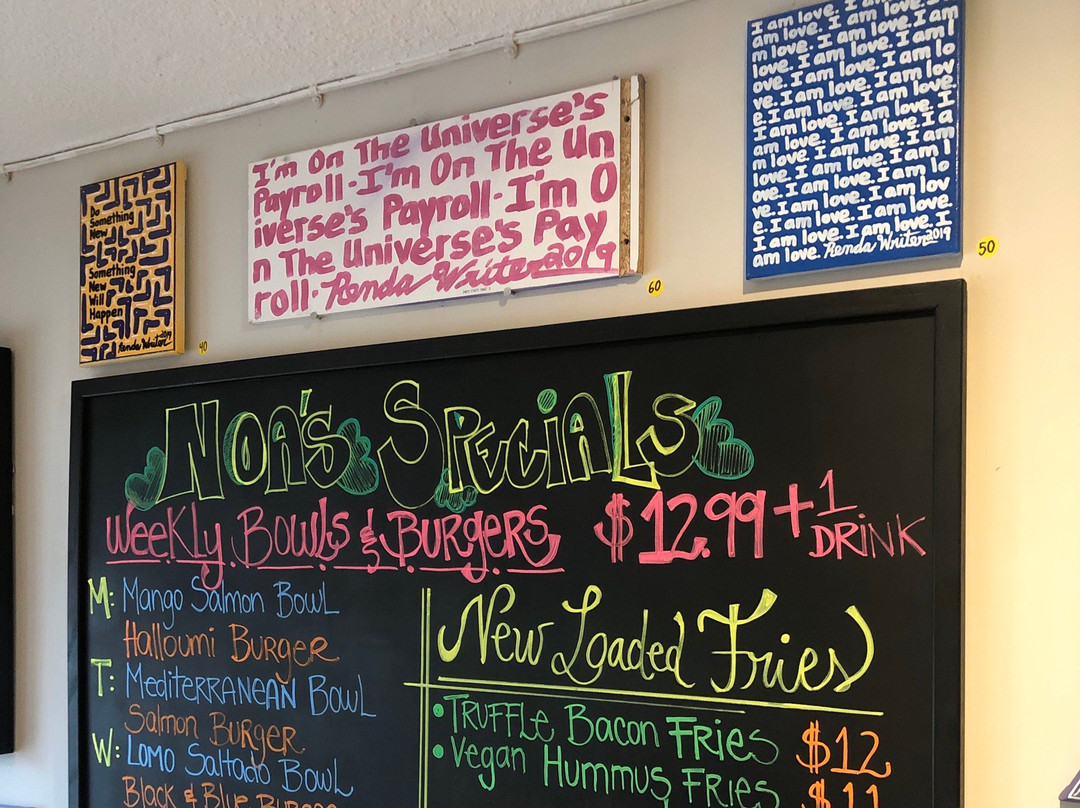 Do
Something
New
Something
New
Will
Happen
Renda Writer 2019
40
I'm On The Universe's
Payroll-I'm On The Un
iverse's Payroll-I'm O
n The Universe's Pay
roll- Renda Writer 2019
60
I am love. I am love. I am
am love. I am love. I am
m love. I am love. I am l
love. I am love. I am lo
ove. I am love. I am lov
ve. I am love. I am love.
e. I am love. I am love. I
I am love. I am love. I a
am love. I am love. I am
m love. I am love. I am l
ove. I am love. I am lo
ve. I am love. I am lov
e. I am love. I am love.
I am love. I am love. I
am love. Renda Writer 2019
50
NOA'S SPECIALS
WEEKLY BOWLS & BURGERS $12.99 + 1 DRINK
M: Mango Salmon Bowl
Halloumi Burger
T: MediTERRANEAN Bowl
Salmon Burger
W: Lomo Saltado Bowl
Black & Blue Burger
New Loaded Fries
• TRUFFLE Bacon FRies $12
• Vegan Hummus FRies $11